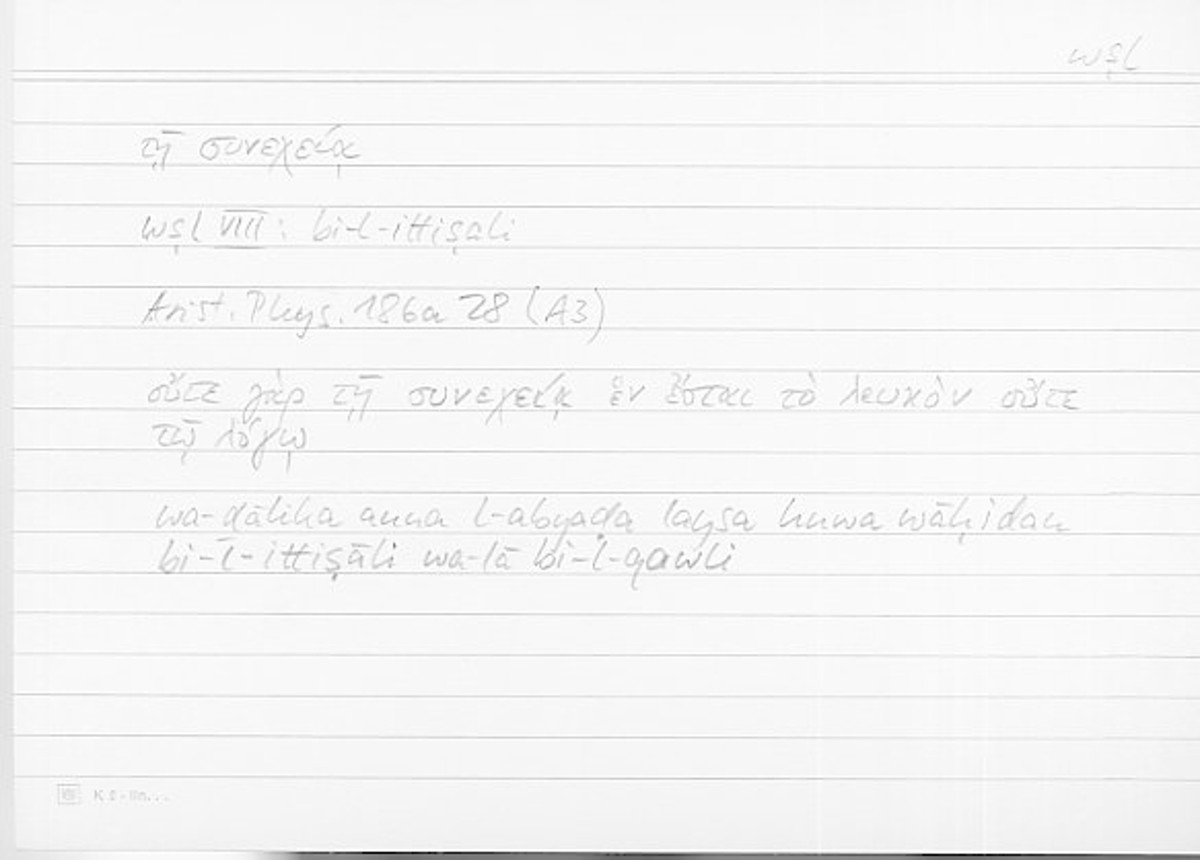 wṣl
τῇ συνεχείᾳ
wṣl VIII: bi-l-ittiṣali
Arist. Phys. 186a 28 (A3)
οὔτε γὰρ τῇ συνεχείᾳ ἓν ἔσται τὸ λευκὸν οὔτε
τῷ λόγῳ
wa-ḏālika anna l-abyaḍa laysa huwa wāḥidan
bi-l-ittiṣāli wa-lā bi-l-qawli